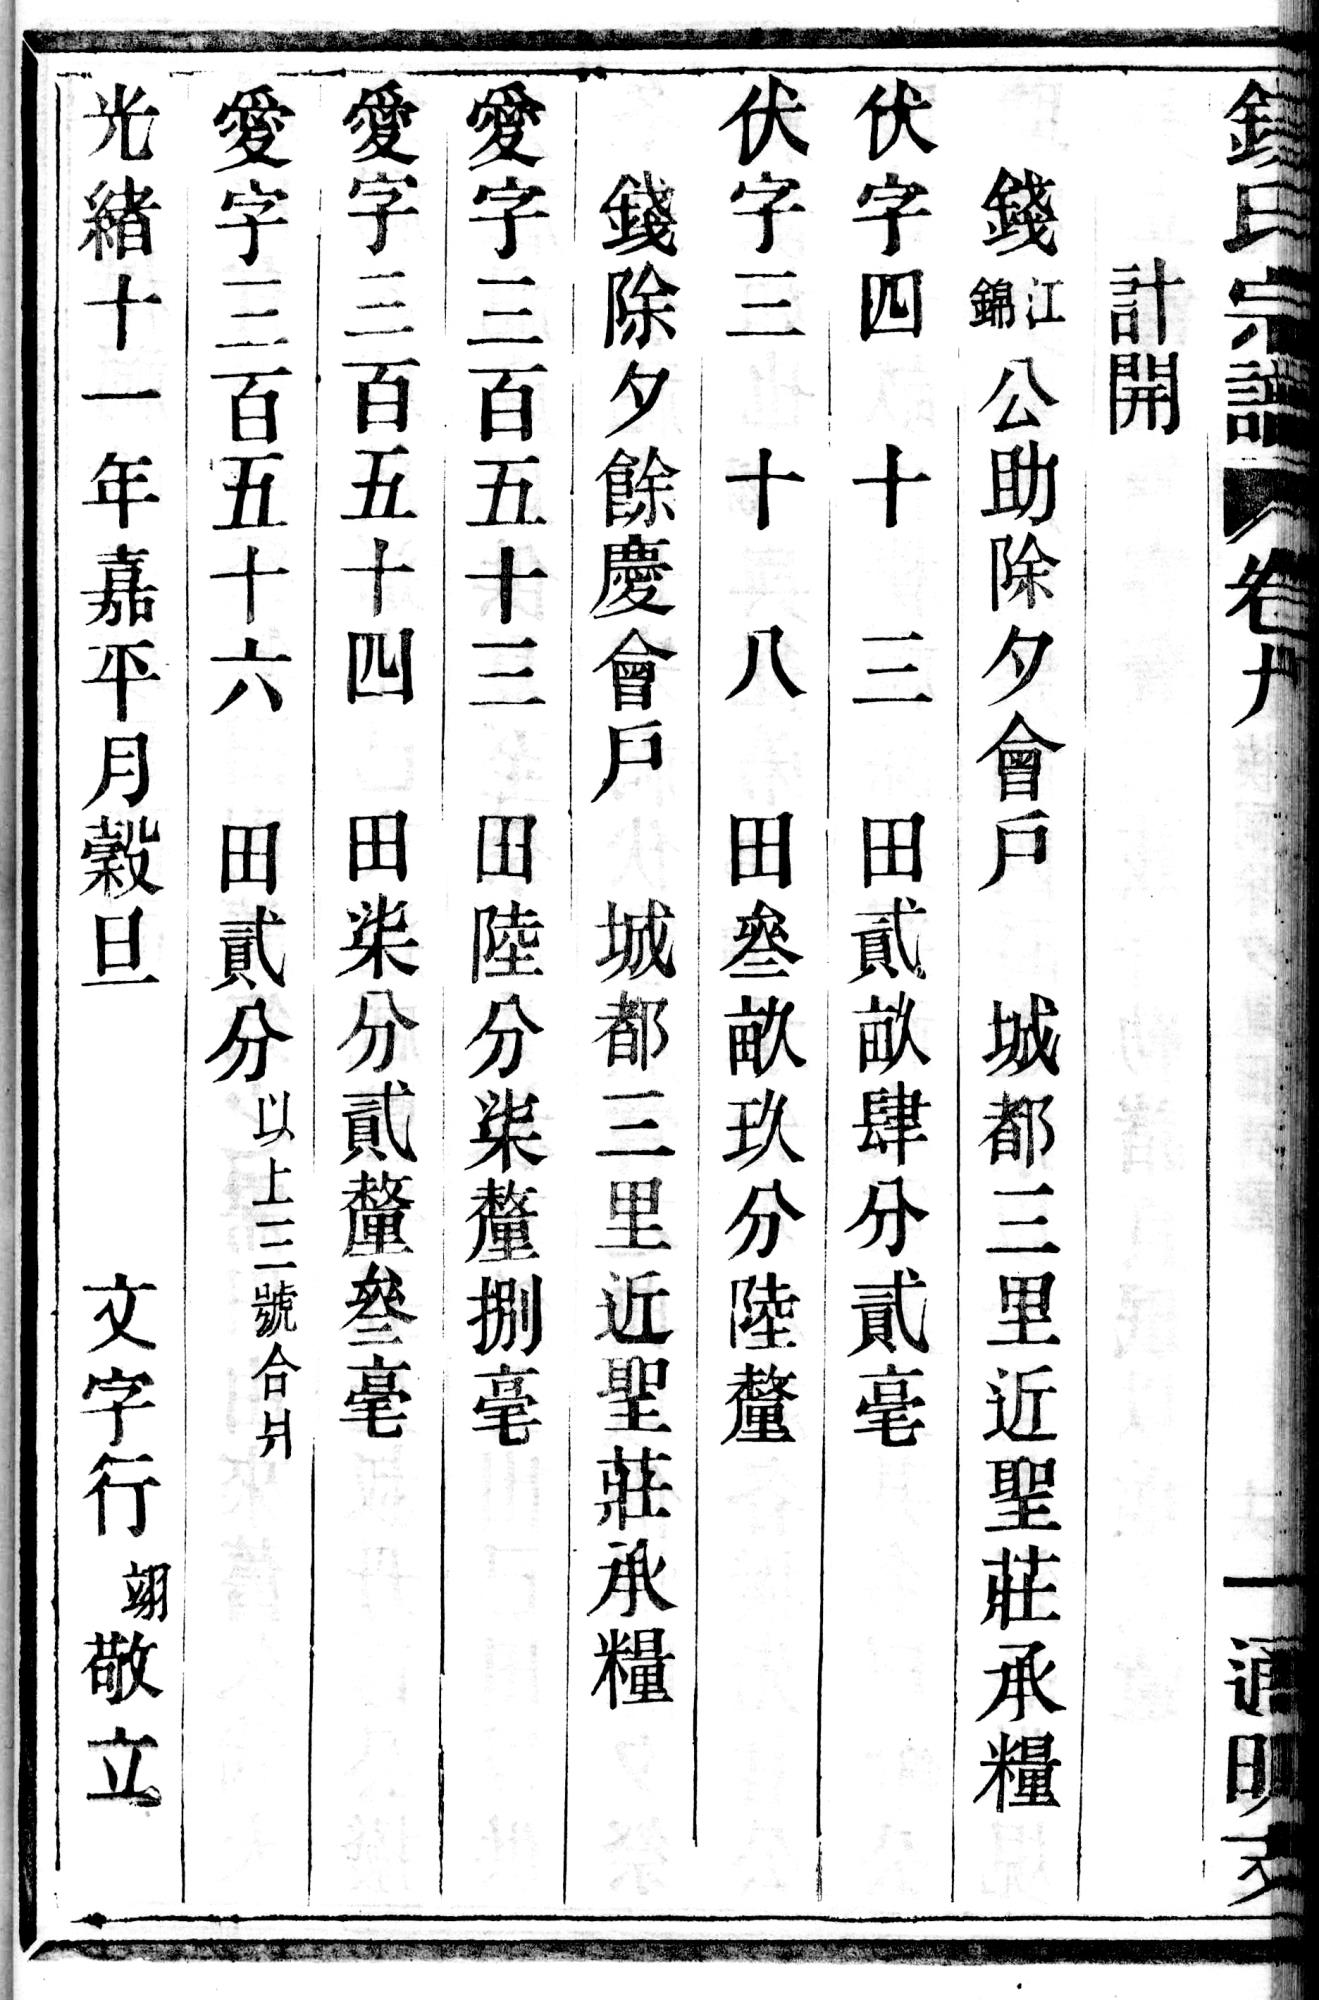 錢氏宗譜 卷 一 通明
計開
錢江錦公助除夕會戶 城都三里近聖莊承糧
伏字四十三 田貳畝肆分貳毫
伏字三十八 田叄畝玖分陸釐
錢除夕餘慶會戶 城都三里近聖莊承糧
愛字三百五十三 田陸分柒釐捌毫
愛字三百五十四 田柒分貳釐叄毫
愛字三百五十六 田貳分以上三號合爿
光緒十一年嘉平月穀旦 文字行翊敬立